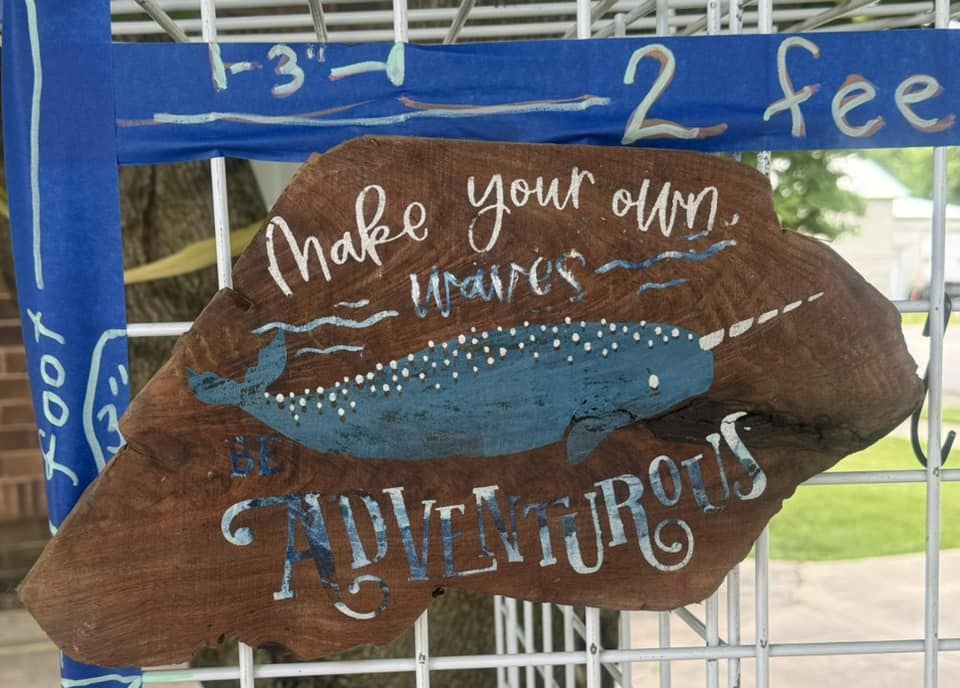 3"
2 fee
Make your own
waves
BE
ADVENTUROUS
1 foot
3"